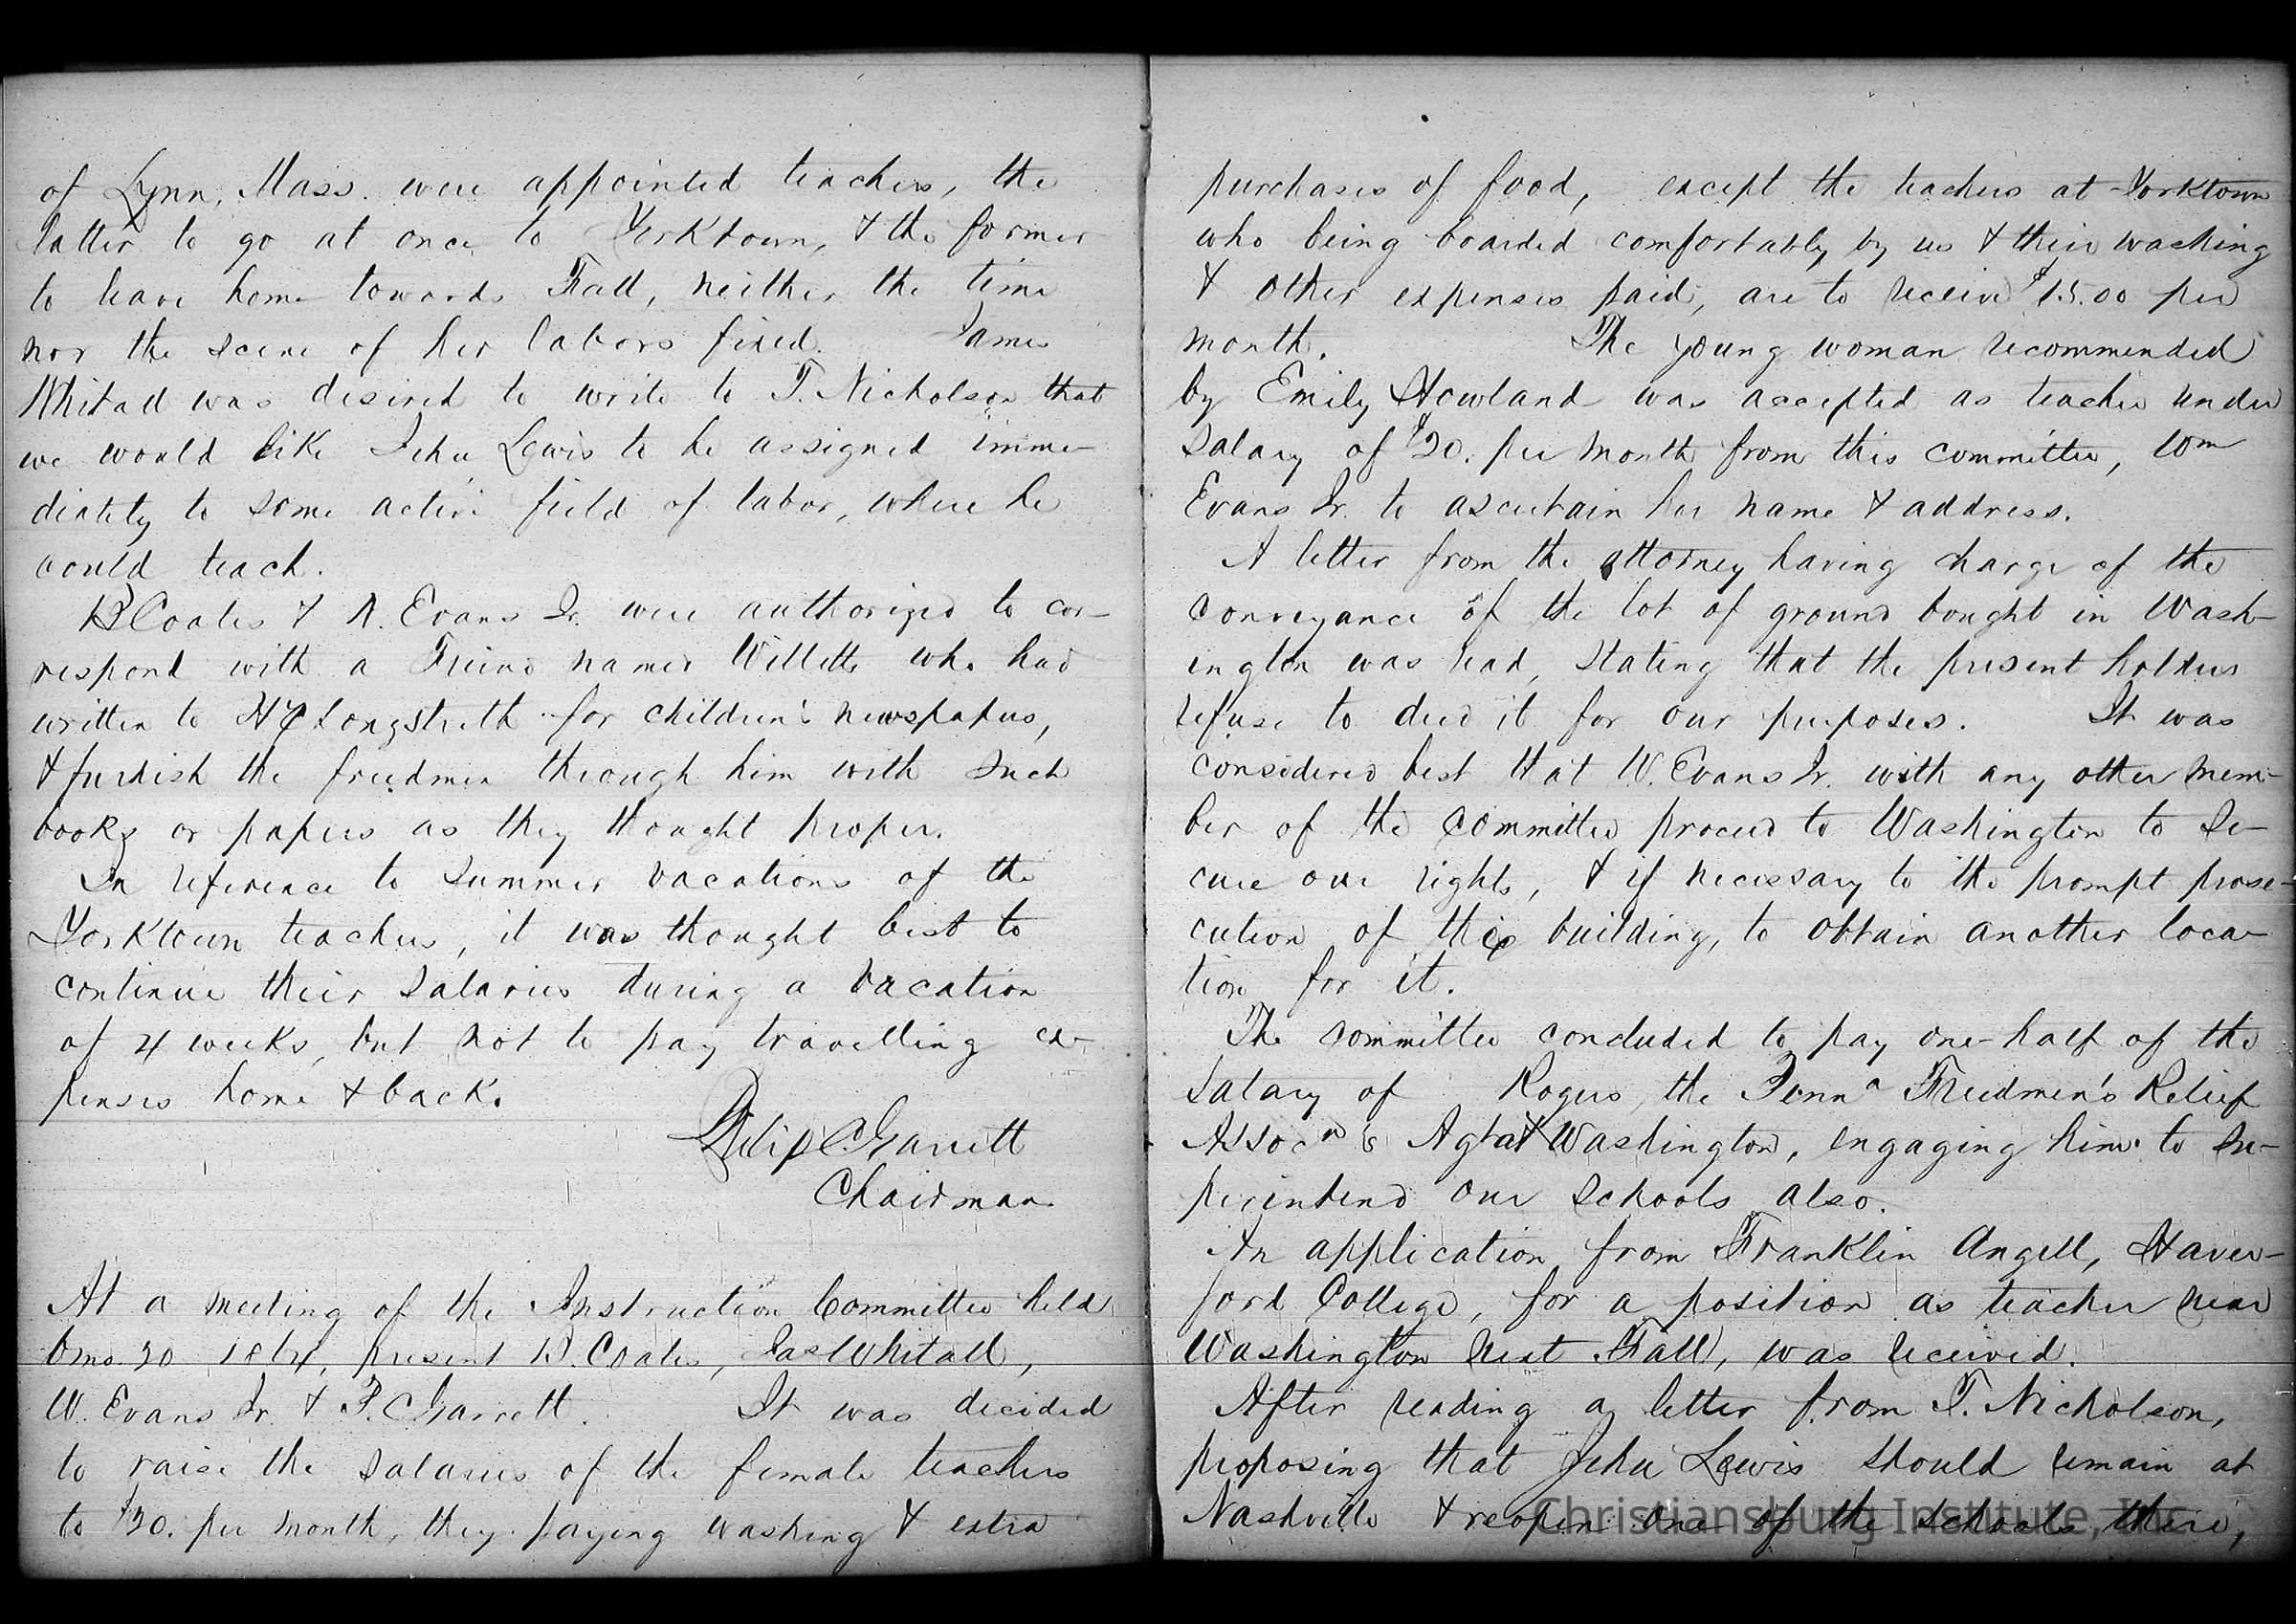 of Lynn, Mass. were appointed teachers, the
latter to go at once to Yorktown, & the former
to leave home towards Fall, neither the time
nor the scene of her labors fixed. James
Whitall was desired to write to T. Nicholson that
we would like John Lewis to be assigned imme-
diately to some active field of labor, where he
could teach.
B Coates & W. Evans Jr. were authorized to cor-
respond with a Friend named Willetts who had
written to H C Longstreth for children's newspapers,
& furnish the freedmen through him with such
books or papers as they thought proper.
In reference to Summer vacations of the
Yorktown teachers, it was thought best to
continue their salaries during a vacation
of 4 weeks, but not to pay travelling ex-
penses home & back.
Philip C. Garrett
Chairman
At a meeting of the Instruction Committee held
6mo. 20 1864, present B. Coates, Jas Whitall,
W. Evans Jr. & P. C Garrett. It was decided
to raise the salaries of the female teachers
to $20. per month, they paying washing & extra
purchases of food, except the teachers at Yorktown
who being boarded comfortably by us & their washing
& other expenses paid, are to receive $15.00 per
month. The young woman recommended
by Emily Howland was accepted as teacher under
salary of $20. per month from this committee, Wm
Evans Jr. to ascertain her name & address.
A letter from the attorney having charge of the
conveyance of the lot of ground bought in Wash-
ington was read, stating that the present holders
refuse to deed it for our purposes. It was
considered best that W. Evans Jr. with any other mem-
ber of the committee proceed to Washington to se-
cure our rights, & if necessary to the prompt prose-
cution of the building, to obtain another loca-
tion for it.
The committee concluded to pay one-half of the
salary of Rogers, the Penna Freedmen's Relief
Assocn's Agt at Washington, engaging him to su-
perintend our schools also.
An application from Franklin Angell, Haver-
ford College, for a position as teacher near
Washington next Fall, was received.
After reading a letter from T. Nicholson,
proposing that John Lewis should remain at
Nashville & reopen one of the schools there,
Christiansburg Institute, Inc.